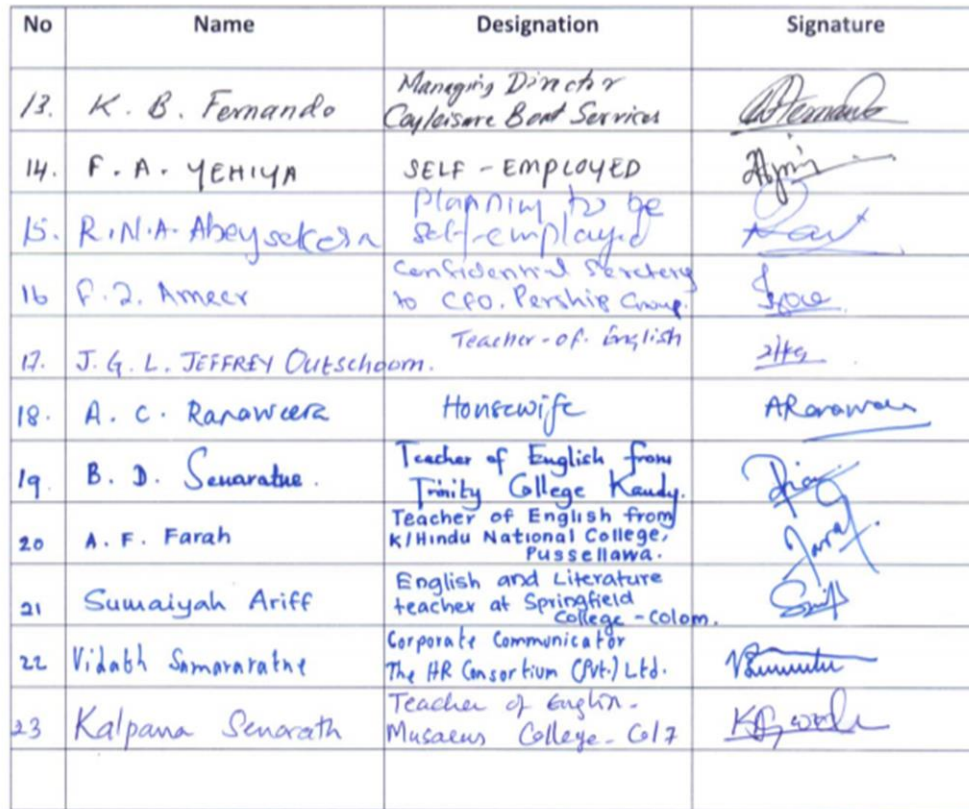 No Name Designation Signature
13. K. B. Fernando Managing Director
Cayleisure Boat Services
14. F. A. YEHIYA SELF - EMPLOYED
15. R.N.A. Abeysekera Planning to be
self-employed
16 F. J. Ameer Confidential Secretary
to CFO. Pership Group.
17. J. G. L. JEFFREY Outschoorn. Teacher - of. English
18. A. C. Ranaweera Housewife
19. B. D. Senaratne. Teacher of English from
Trinity College Kandy.
20 A. F. Farah Teacher of English from
K/Hindu National College,
Pussellawa.
21 Sumaiyah Ariff English and Literature
teacher at Springfield
College - Colom.
22 Vidabh Samararatne Corporate Communicator
The HR Consortium (Pvt.) Ltd.
23 Kalpana Senarath Teacher of English -
Musaeus College - Col 7